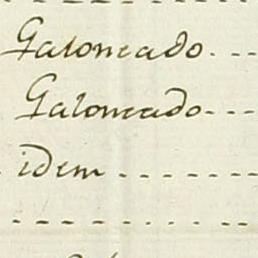 Galoneado
Galoneado
idem